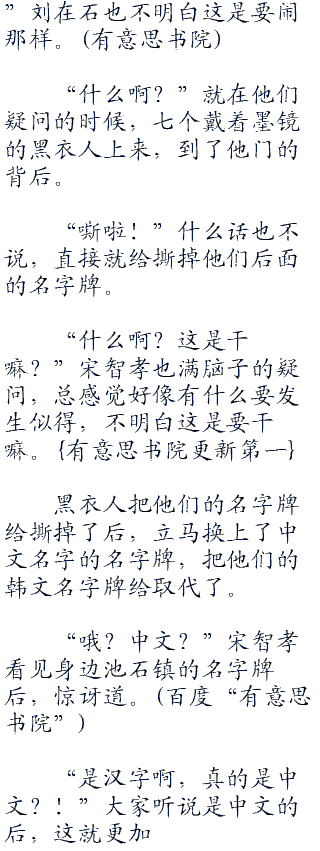 ”刘在石也不明白这是要闹
那样。(有意思书院)
“什么啊？”就在他们
疑问的时候，七个戴着墨镜
的黑衣人上来，到了他门的
背后。
“嘶啦！”什么话也不
说，直接就给撕掉他们后面
的名字牌。
“什么啊？这是干
嘛？”宋智孝也满脑子的疑
问，总感觉好像有什么要发
生似得，不明白这是要干
嘛。{有意思书院更新第一}
黑衣人把他们的名字牌
给撕掉了后，立马换上了中
文名字的名字牌，把他们的
韩文名字牌给取代了。
“哦？中文？”宋智孝
看见身边池石镇的名字牌
后，惊讶道。(百度“有意思
书院”)
“是汉字啊，真的是中
文？！”大家听说是中文的
后，这就更加